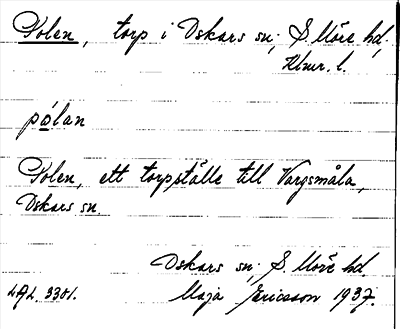 Polen, torp i Oskars sn; S. Möre hd,
Klmr. l.
pólan
Polen, ett torpställe till Vargsmåla,
Oskars sn.
Oskars sn; S. Möre hd.
LAL. 3301. Maja Ericsson 1937.